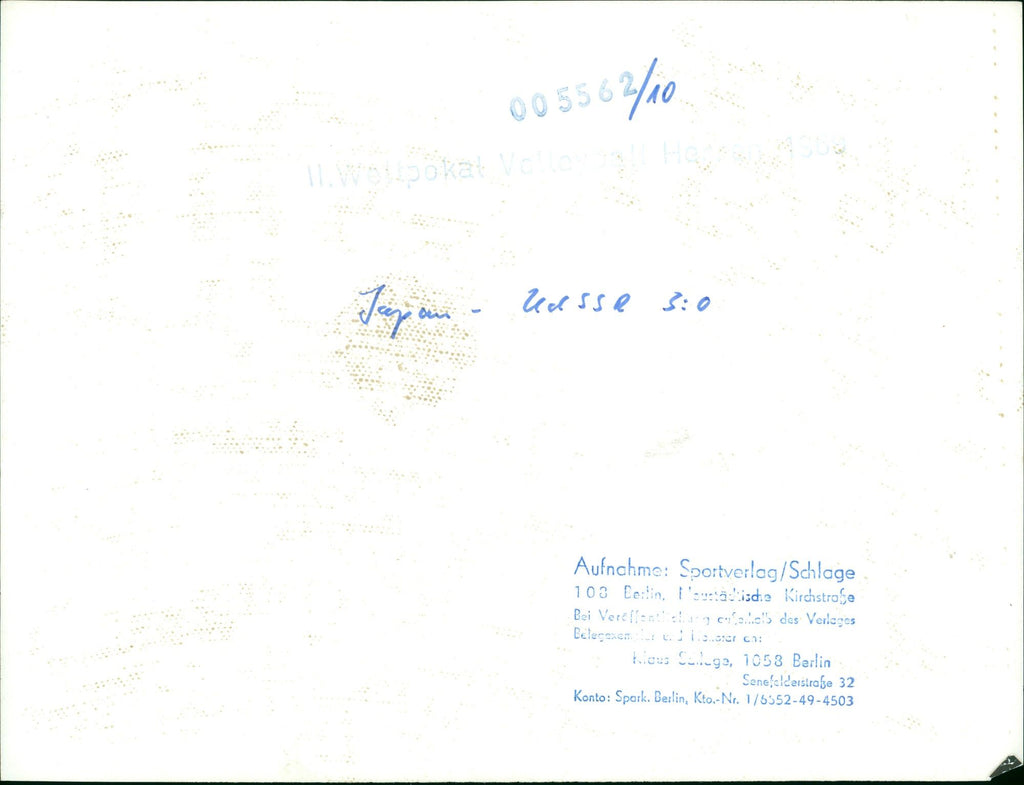 005562/10
II. Weltpokal Volleyball Herren 1969
Japan - UdSSR 3:0
Aufnahme: Sportverlag/Schlage
108 Berlin, Neustädtische Kirchstraße
Bei Veröffentlichung außerhalb des Verlages
Belegexemplar und Honorar an:
Klaus Schlage, 1058 Berlin
Senefelderstraße 32
Konto: Spark. Berlin, Kto.-Nr. 1/6552-49-4503